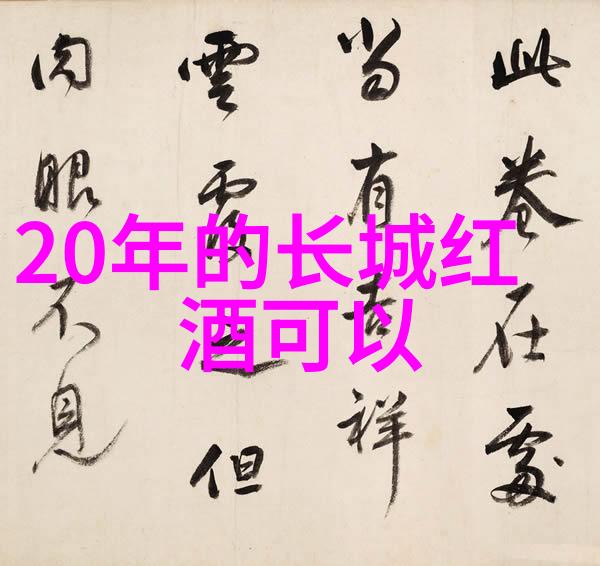 20年的长城红
酒可以
此卷在處
当有吉祥
雲霞之但
肉眼不見